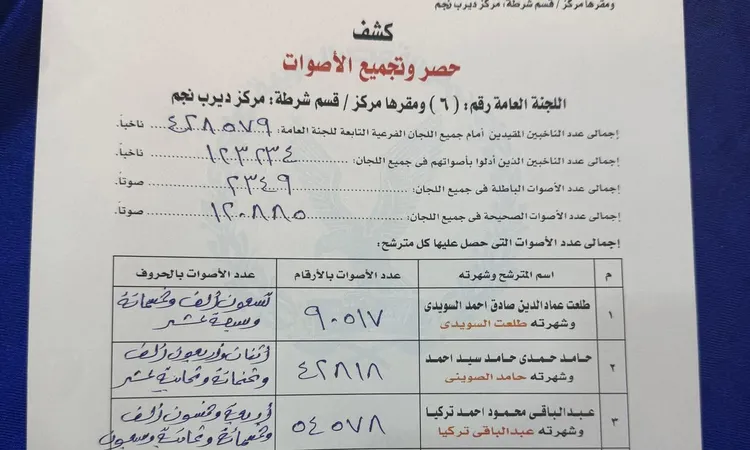 ومقرها مركز / قسم شرطة: مركز ديرب نجم
كشف
حصر وتجميع الأصوات
اللجنة العامة رقم: (٦) ومقرها مركز / قسم شرطة: مركز ديرب نجم
إجمالى عدد الناخبين المقيدين أمام جميع اللجان الفرعية التابعة للجنة العامة: ٤٢٨٥٧٩ ناخباً.
إجمالى عدد الناخبين الذين أدلوا بأصواتهم فى جميع اللجان: ١٢٣٢٣٤ ناخباً.
إجمالى عدد الأصوات الباطلة فى جميع اللجان: ٢٣٤٩ صوتاً.
إجمالى عدد الأصوات الصحيحة فى جميع اللجان: ١٢٠٨٨٥ صوتاً.
إجمالى عدد الأصوات التى حصل عليها كل مترشح:
م اسم المترشح وشهرته عدد الأصوات بالأرقام عدد الأصوات بالحروف
١ طلعت عمادالدين صادق احمد السويدى ٩٠٥١٧ تسعون ألف وخمسمائة
وشهرته طلعت السويدى وسبعة عشر
٢ حامد حمدى حامد سيد احمد ٤٢٨١٨ أثنان وأربعون ألف
وشهرته حامد الصوينى وثمنمائة وثمانية عشر
٣ عبدالباقى محمود احمد تركيا ٥٤٥٧٨ أربعة وخمسون ألف
وشهرته عبدالباقى تركيا وخمسمائة وثمانية وسبعون